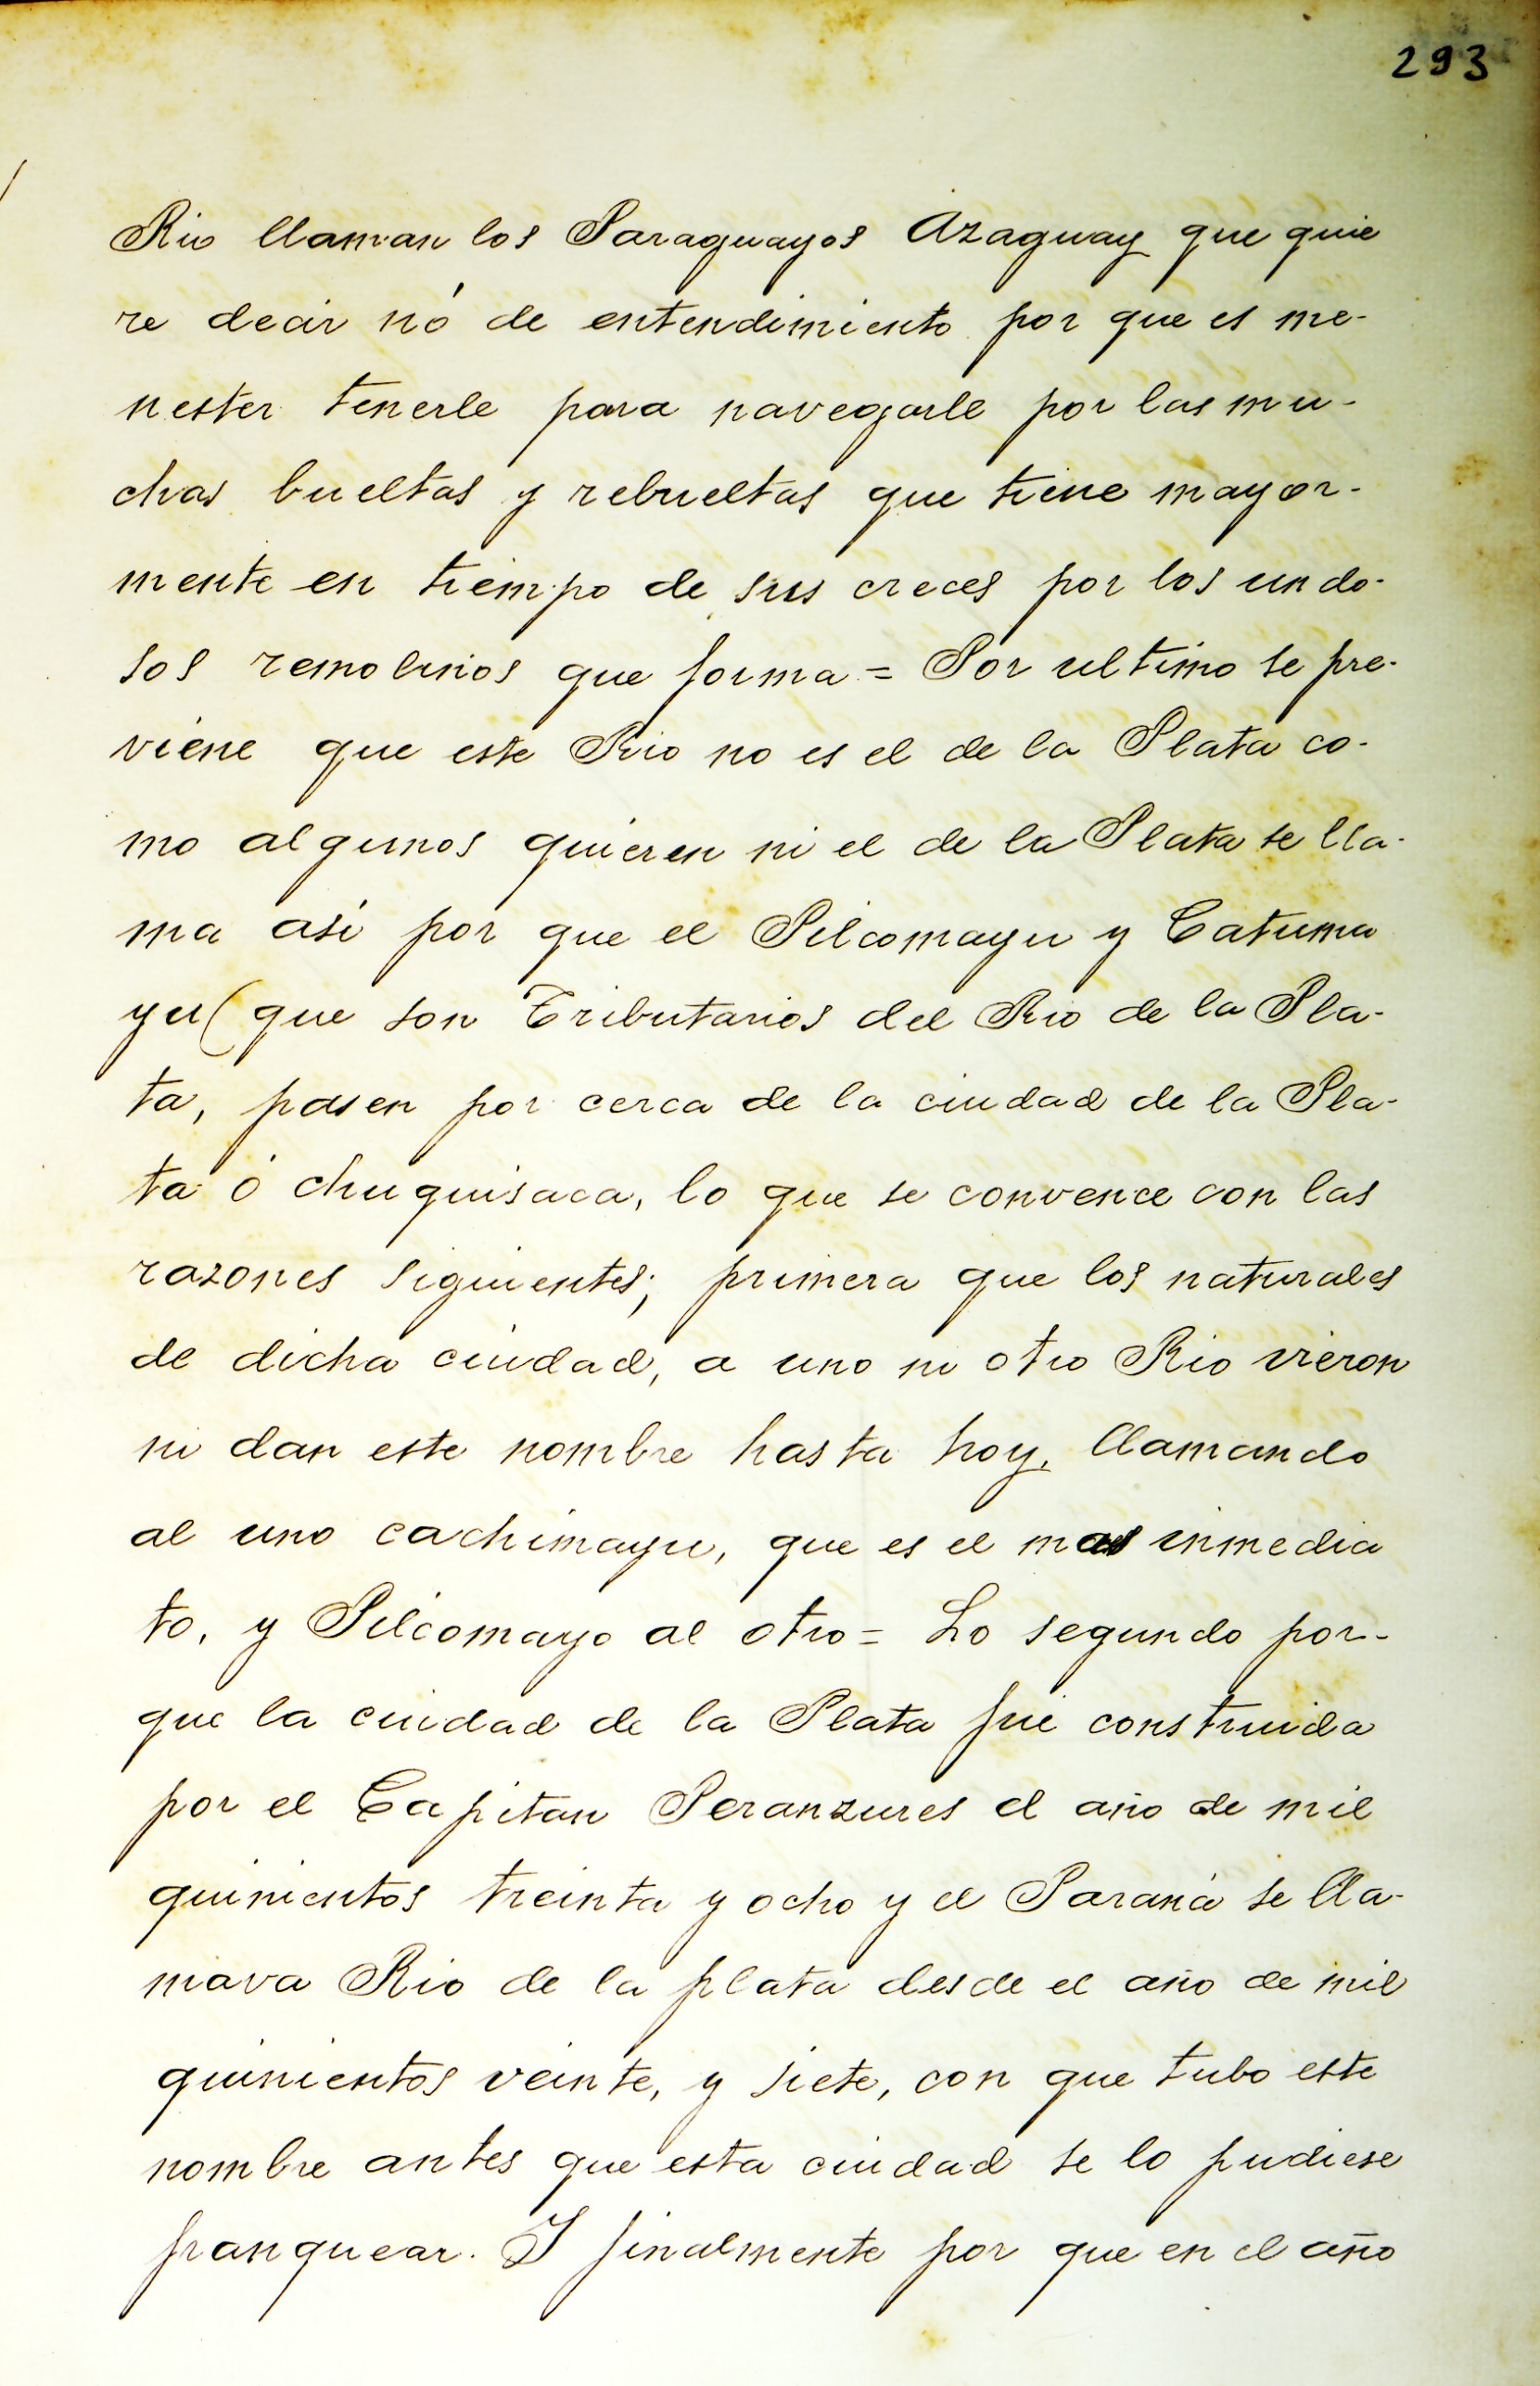 293
Rio llaman los Paraguayos Azaguay que quie
re decir nó de entendimiento por que es me-
nester tenerle para navegarle por las mu-
chas bueltas y rebueltas que tiene mayor-
mente en tiempo de sus creces por los undo-
sos remolinos que forma = Por ultimo se pre-
viene que este Rio no es el de la Plata co-
mo algunos quieren ni el de la Plata se lla-
ma asi por que el Pilcomayu y Catuma
yu (que son Tributarios del Rio de la Pla-
ta, pasen por cerca de la ciudad de la Pla-
ta ó chuquisaca, lo que se convence con las
razones siguientes; primera que los naturales
de dicha ciudad, a uno ni otro Rio vieron
ni dan este nombre hasta hoy, llamando
al uno cachimayu, que es el mas inmedia
to, y Pilcomayo al otro = Lo segundo por-
que la ciudad de la Plata fue construida
por el Capitan Peranzures el año de mil
quinientos treinta y ocho y el Paraná se lla-
mava Rio de la plata desde el año de mil
quinientos veinte, y siete, con que tubo este
nombre antes que esta ciudad se lo pudiese
franquear. Y finalmente por que en el año